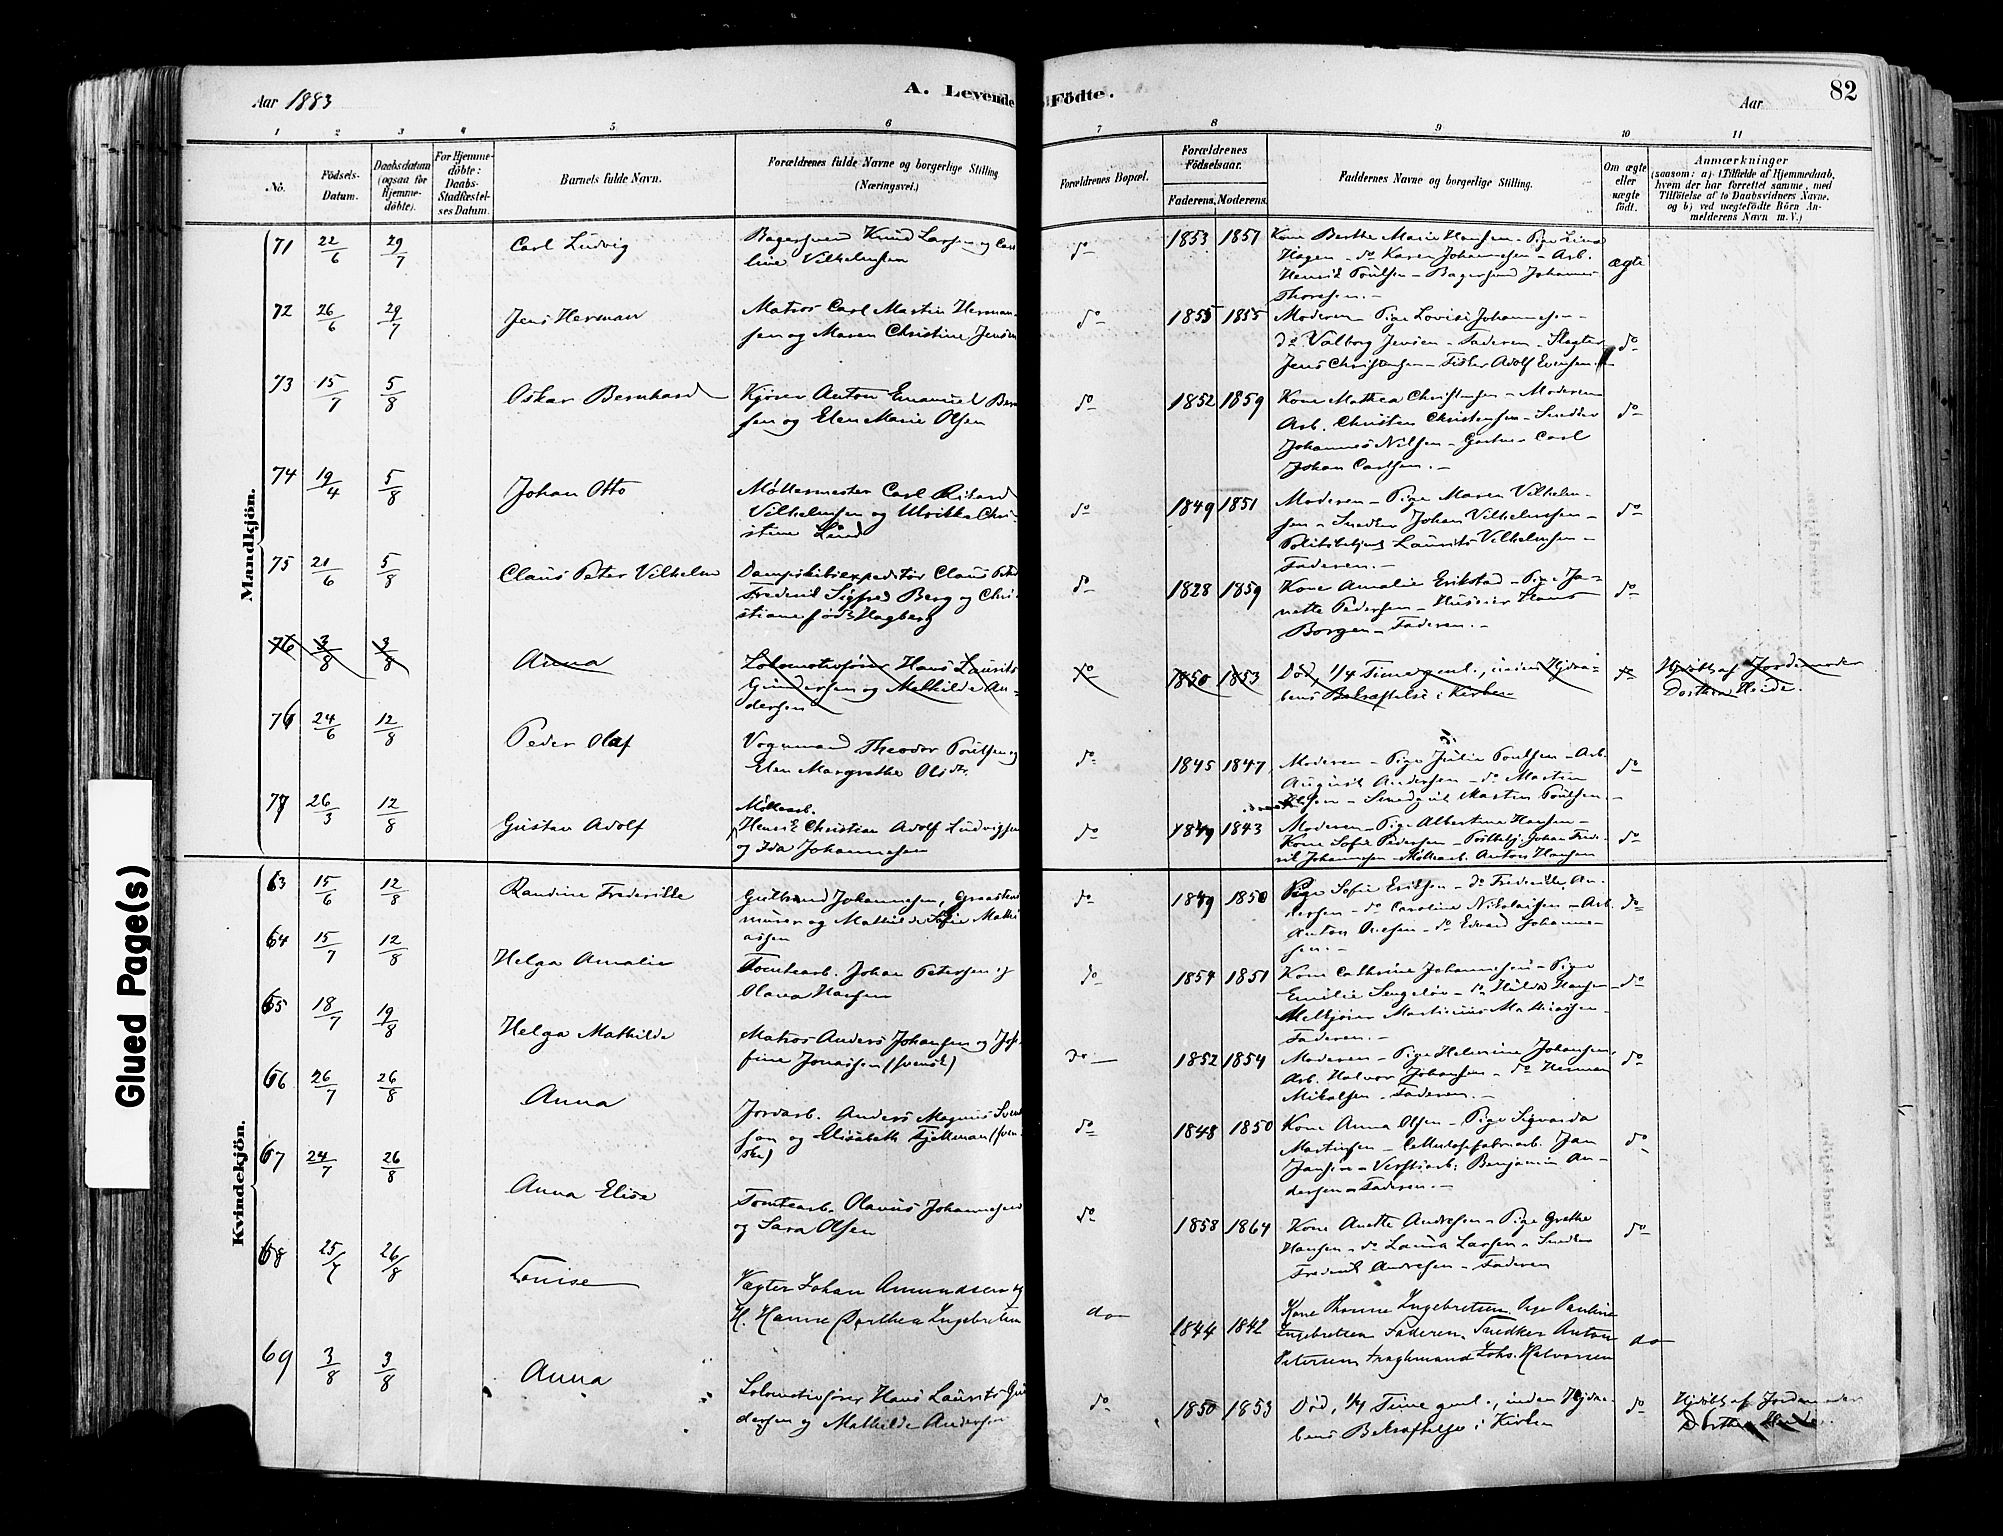 Aar 1883
A. Levende
Födte.
Aar
82
1 2 3 4 5 6 7 8 9 10 11
No.
Födsels-
Datum.
Daabsdatum
(ogsaa for
Hjemme-
döbte).
For Hjemme-
döbte:
Daabs-
Stadfæstel-
ses Datum.
Barnets fulde Navn.
Forældrenes fulde Navne og borgerlige Stilling
(Næringsvei.)
Forældrenes Bopæl.
Forældrenes
Födselsaar.
Faderens. Moderens.
Faddernes Navne og borgerlige Stilling.
Om ægte
eller
uægte
födt.
Anmærkninger
(saasom: a) i Tilfælde af Hjemmedaab,
hvem der har forrettet samme, med
Tilföielse af to Daabsvidners Navne.
og b) ved uægtefödte Börn An-
melderens Navn m. V.)
Mandkjön.
71 22/6 29/7 Carl Ludvig
Bagersvend Knud Larsen og
line Vilhelmsen
do 1853 1857
Kone Berthe Marie Hansen - Pige Lina
Hagen - do Karen Johannesen - Arb.
Henrik Poulsen - Bagersvend Johannes
Thoresen. -
ægte
72 26/6 29/7 Jens Herman
Matros Carl Martin Herman-
sen og Maren Christine Jensen
do 1855 1855
Moderen - Pige Lovise Johannesen -
do Valborg Jensen - Faderen - Slagter
Jens Christensen - Fisker Adolf Evensen
do
73 15/7 5/8 Oskar Bernhard
Kjører Anton Emanuel
sen og Elen Marie Olsen
do 1852 1859
Kone Mathea Christensen - Moderen
Arb. Christen Christensen - Snedker
Johannes Nilsen - Carl
Johan Carlsen. -
do
74 19/4 5/8 Johan Otto
Møllermester Carl Rikard
Vilhelmsen og Ulrikke Chri-
stine Lund
do 1849 1851
Moderen - Pige Maren Vilhelm-
sen - Snedker Johan Vilhelmsen -
Politibetjent Laurits Vilhelmsen -
Faderen. -
do
75 21/6 5/8 Claus Peter Vilhelm
Dampskibsexpeditør Claus Peter
Frederik Sigfred Berg og Chri-
stiane født Hagberg
do 1828 1859
Kone Amalie Erikstad - Pige Ja-
nette Pedersen - Huseier Hans
Borgen - Faderen. -
do
76 3/8 3/8 Anna
Lokomotivfører Hans Laurits
Gundersen og Mathilde An-
dersen
do 1850 1853
Død, 1/4 Time gml., inden Hjdaa-
bens Bekræftelse i Kirken
do
Hjdøbt af Jordemoder
Dorthea Heide.
76 24/6 12/8 Peder Olaf
Vognmand Theodor Poulsen og
Elen Margrethe Olsdr.
do 1845 1847
Moderen - Pige Julie Poulsen - Arb.
August Andersen - do Martin
Olsen - Smedsvd. Martin Poulsen. -
do
77 26/3 12/8 Gustav Adolf
Møllearb.
Henrik Christian Adolf Ludvigsen
og Ida Johannesen
do 1849 1843
Moderen - Pige Albertine Hansen -
Kone Sofie Pedersen - Postbetj. Johan Frede-
rik Johannesen - Møllearb. Anton Hansen
do
Kvindekjön.
63 15/6 12/8 Randine Frederikke
Gulbrand Johannesen, Graasten-
murer og Mathilde Sofie Mathi-
asen
do 1849 1850
Pige Sofie Eriksen - do Frederikke An-
dersen - do Caroline Nikolaisen - Arb.
Anton - do Edvard Johanne-
sen. -
do
64 15/7 12/8 Helga Amalie
Tomtearb. Johan Petersen og
Olava Hansen
do 1854 1851
Kone Cathrine Johannesen - Pige
Emilie Sengeløv - do Hilda Hansen -
Melkjører Martinius Mathiasen -
Faderen. -
do
65 18/7 19/8 Helga Mathilde
Matros Anders Johansen og Jose-
fine Jonassen (svensk)
do - 1852 1854
Moderen - Pige Helmine Johansen,
Arb. Halvor Johansen - do Herman
Mikalsen - Faderen. -
do
66 26/7 26/8 Anna
Jordarb. Anders Magnus
son og Elisabeth Fjellman (sven-
ske)
do 1848 1850
Kone Anna Olsen - Pige Sigvarda
Martinsen - Cellulosefabrarb. Jan
Jansen - Verftsarb. Benjamin An-
dersen - Faderen. -
do
67 24/7 26/8 Anna Elise
Tomtearb. Olavus Johannesen
og Sara Olsen
do 1858 1864
Kone Anette Andresen - Pige Grethe
Hansen - do Laura Larsen - Snedker
Frederik Andresen - Faderen
do
68 25/7 26/8 Louise
Vægter Johan Amundsen og
H. Hanne Dorthea Ingebretsen
do 1844 1842
Kone Hanne Ingebretsen. Pige Pauline
Ingebretsen Faderen. Snedker Anton
Petersen Johs. Halvorsen
do
69 3/8 3/8 Anna
Lokomotivfører Hans Laurits Gun-
dersen og Mathilde Andersen
do 1850 1853
Død, 1/4 Time gml., inden Hjdaa-
bens Bekræftelse i Kirken
do
Hjdøbt af Jordemoder
Dorthea Heide.
Glued Page(s)